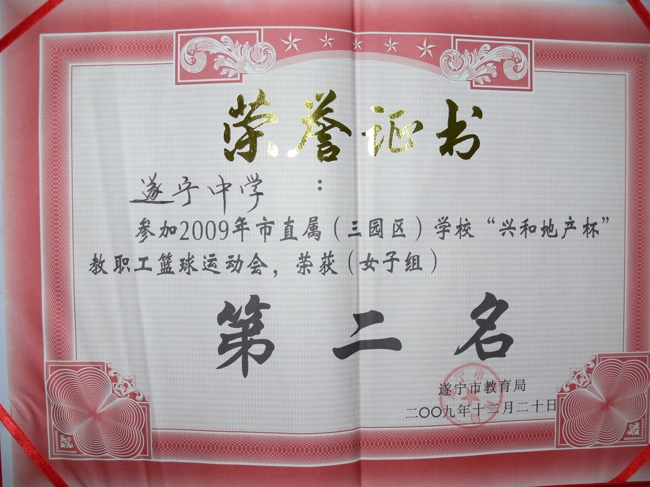 荣誉证书
遂宁中学：
参加2009年市直属（三园区）学校“兴和地产杯”
教职工篮球运动会，荣获（女子组）
第二名
遂宁市教育局
二〇〇九年十二月二十日